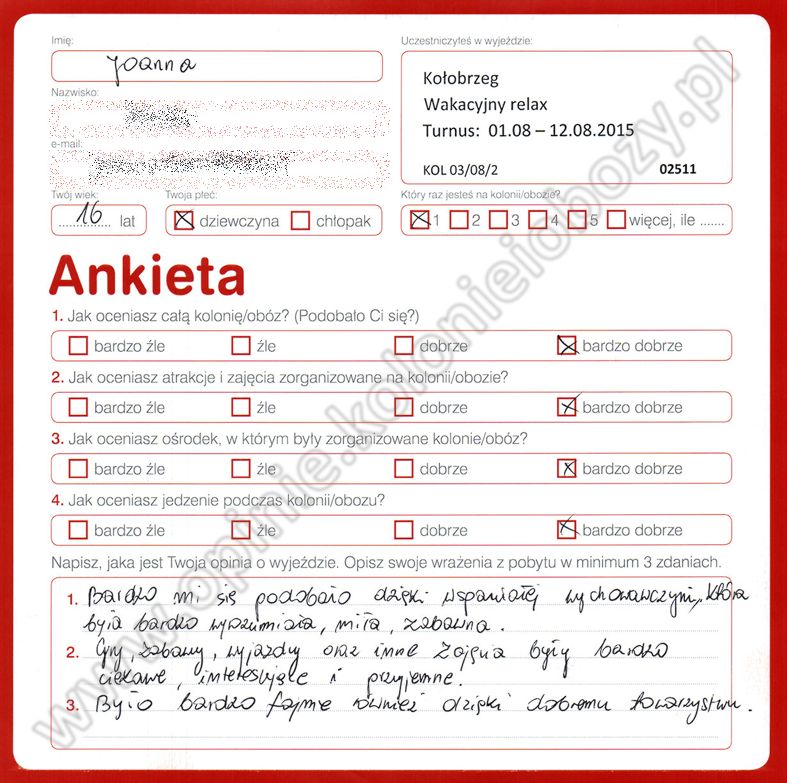 Imię:
Joanna
Uczestniczyłeś w wyjeździe:
Kołobrzeg
Wakacyjny relax
Turnus: 01.08 – 12.08.2015
KOL 03/08/2 02511
Nazwisko:
e-mail:
Twój wiek:
16 lat
Twoja płeć:
dziewczyna chłopak
Który raz jesteś na kolonii/obozie?
1 2 3 4 5 więcej, ile .......
Ankieta
1. Jak oceniasz całą kolonię/obóz? (Podobało Ci się?)
bardzo źle źle dobrze bardzo dobrze
2. Jak oceniasz atrakcje i zajęcia zorganizowane na kolonii/obozie?
bardzo źle źle dobrze bardzo dobrze
3. Jak oceniasz ośrodek, w którym były zorganizowane kolonie/obóz?
bardzo źle źle dobrze bardzo dobrze
4. Jak oceniasz jedzenie podczas kolonii/obozu?
bardzo źle źle dobrze bardzo dobrze
Napisz, jaka jest Twoja opinia o wyjeździe. Opisz swoje wrażenia z pobytu w minimum 3 zdaniach.
1. Bardzo mi się podobało dzięki wspaniałej wychowawczyni, która
była bardzo wyrozumiała, miła, zabawna.
2. Gry, zabawy, wyjazdy oraz inne zajęcia były bardzo
ciekawe, interesujące i przyjemne.
3. Było bardzo fajnie również dzięki dobremu towarzystwu.
www.opinie.kolonieiobozy.pl